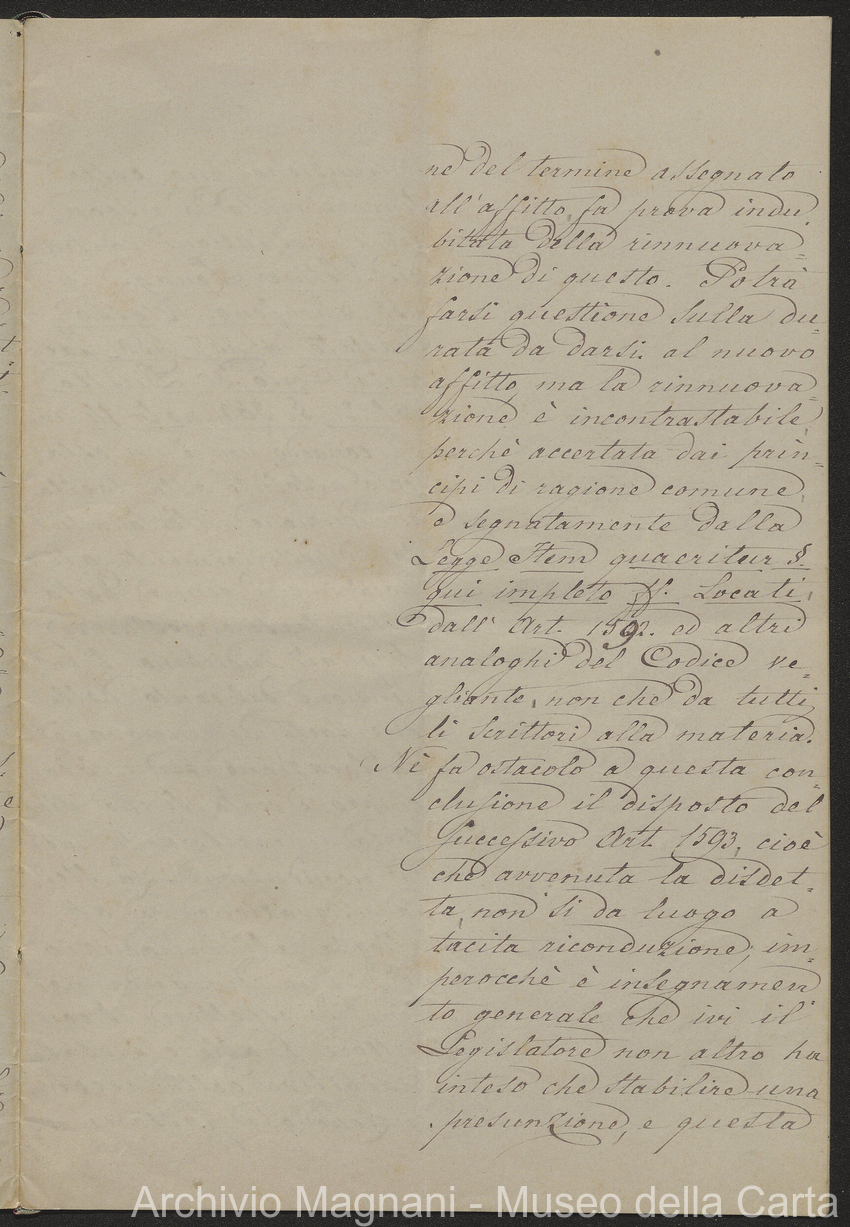 ne del termine assegnato
all'affitto, fa prova indu
bitata della rinnuova=
zione di questo. Potrà
farsi questione sulla du=
rata da darsi al nuovo
affitto, ma la rinnuova=
zione è incontrastabile,
perchè accertata dai prin=
cipi di ragione comune,
e segnatamente dalla
Legge Item quaeritur §.
qui impleto ff. Locati,
dall'Art. 1592. ed altri
analoghi del Codice ve=
gliante, non che da tutti
li scrittori alla materia.
Nè fa ostacolo a questa con=
clusione il disposto del
successivo Art. 1593, cioè
che avvenuta la disdet=
ta, non si da luogo a
tacita riconduzione; im=
perocchè è insegnamen
to generale che ivi il
Legislatore non altro ha
inteso che stabilire una
presunzione, e questa
Archivio Magnani - Museo della Carta